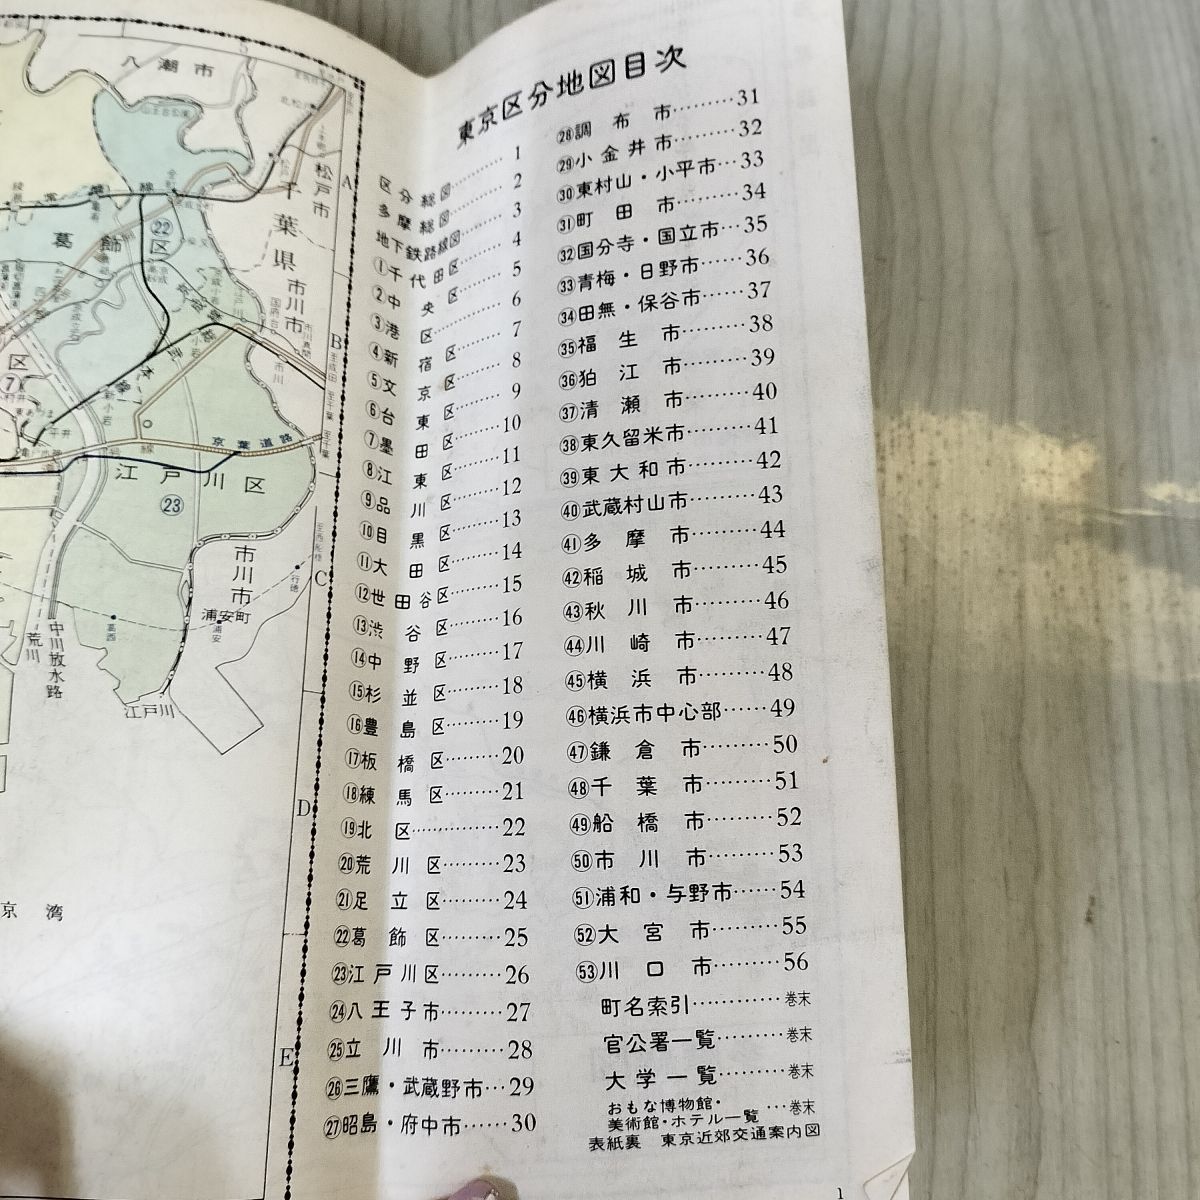 東京区分地図目次
区分総図………1
多摩総図………2
地下鉄路線図………3
①千代田区………4
②中央区………5
③港区………6
④新宿区………7
⑤文京区………8
⑥台東区………9
⑦墨田区………10
⑧江東区………11
⑨品川区………12
⑩目黒区………13
⑪大田区………14
⑫世田谷区………15
⑬渋谷区………16
⑭中野区………17
⑮杉並区………18
⑯豊島区………19
⑰板橋区………20
⑱練馬区………21
⑲北区………22
⑳荒川区………23
㉑足立区………24
㉒葛飾区………25
㉓江戸川区………26
㉔八王子市………27
㉕立川市………28
㉖三鷹・武蔵野市…29
㉗昭島・府中市……30
㉘調布市………31
㉙小金井市………32
㉚東村山・小平市…33
㉛町田市………34
㉜国分寺・国立市…35
㉝青梅・日野市……36
㉞田無・保谷市……37
㉟福生市………38
㊱狛江市………39
㊲清瀬市………40
㊳東久留米市………41
㊴東大和市………42
㊵武蔵村山市………43
㊶多摩市………44
㊷稲城市………45
㊸秋川市………46
㊹川崎市………47
㊺横浜市………48
㊻横浜市中心部……49
㊼鎌倉市………50
㊽千葉市………51
㊾船橋市………52
㊿市川市………53
51浦和・与野市……54
52大宮市………55
53川口市………56
町名索引…………巻末
官公署一覧………巻末
大学一覧………巻末
おもな博物館・
美術館・ホテル一覧…巻末
表紙裏 東京近郊交通案内図
1
八潮市
松戸市
千葉県
市川市
葛飾区
22
江戸川区
23
京葉道路
市川市
浦安町
浦安
行徳
葛西
荒川
中川放水路
江戸川
京湾
A
B
C
D
E